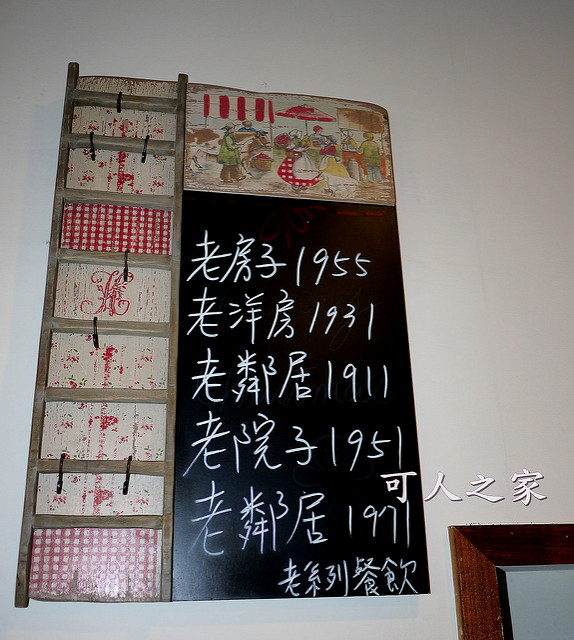 老房子1955
老洋房1931
老鄰居1911
老院子1951
老鄰居1971
老系列餐飲
可人之家